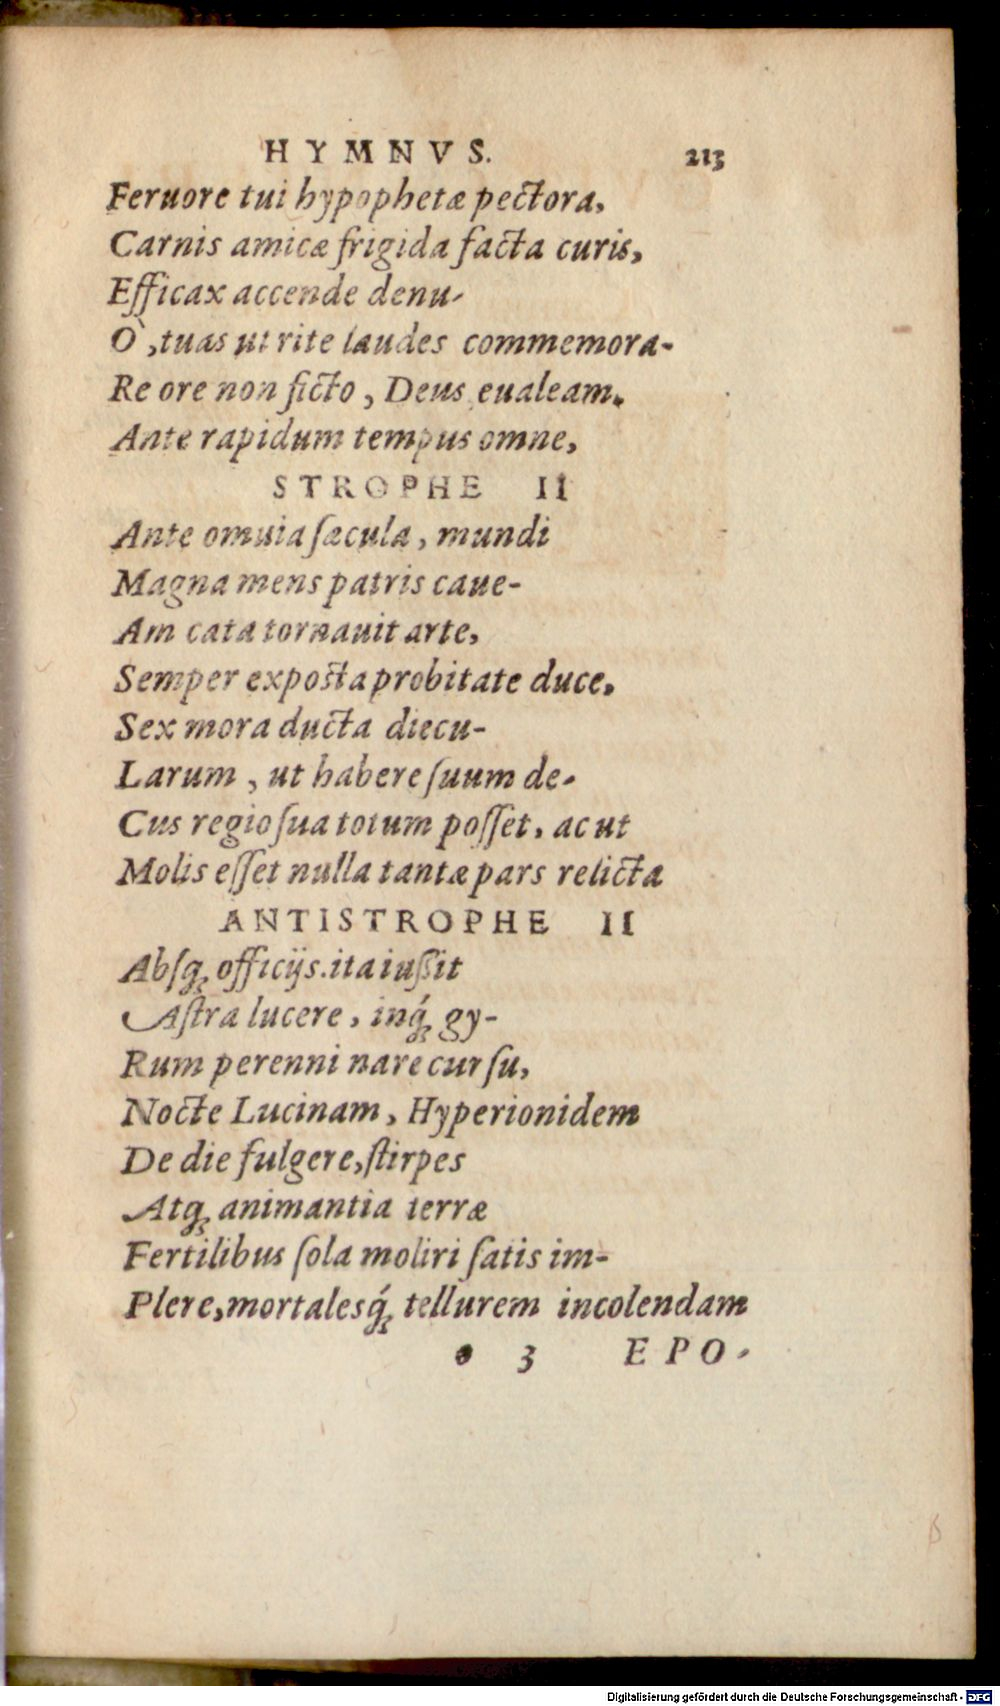 HYMNVS. 213
Feruore tui hypophetæ pectora,
Carnis amicæ frigida facta curis,
Efficax accende denu-
Ò, tuas ut rite laudes commemora-
Re ore non ficto, Deus eualeam.
Ante rapidum tempus omne,
STROPHE II
Ante omuia sæcula, mundi
Magna mens patris caue-
Am cata tornauit arte,
Semper exposta probitate duce.
Sex mora ducta diecu-
Larum, ut habere suum de-
Cus regio sua totum posset, ac ut
Molis esset nulla tantæ pars relicta
ANTISTROPHE II
Absq; officijs. ita iußit
Astra lucere, inq́; gy-
Rum perenni nare cursu,
Nocte Lucinam, Hyperionidem
De die fulgere, stirpes
Atq; animantia terræ
Fertilibus sola moliri satis im-
Plere, mortalesq́; tellurem incolendam
• 3 EPO-
Digitalisierung gefördert durch die Deutsche Forschungsgemeinschaft - DFG